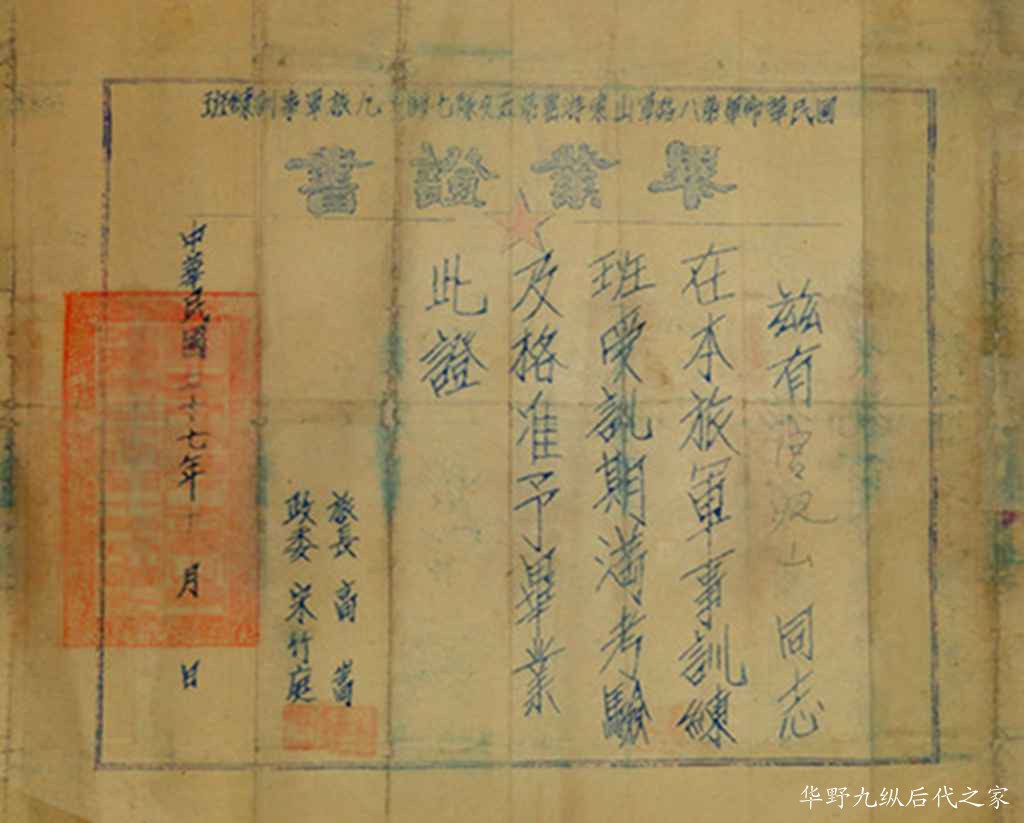 國民革命軍第八路軍山東游擊第五支隊七師十九旅軍事訓練班
畢業證書
茲有宫 山同志
在本旅軍事訓練
班受訓期滿考驗
及格准予畢業
此證
旅長 高嵩
政委 宋竹庭
中華民國二十七年十月 日
华野九纵后代之家